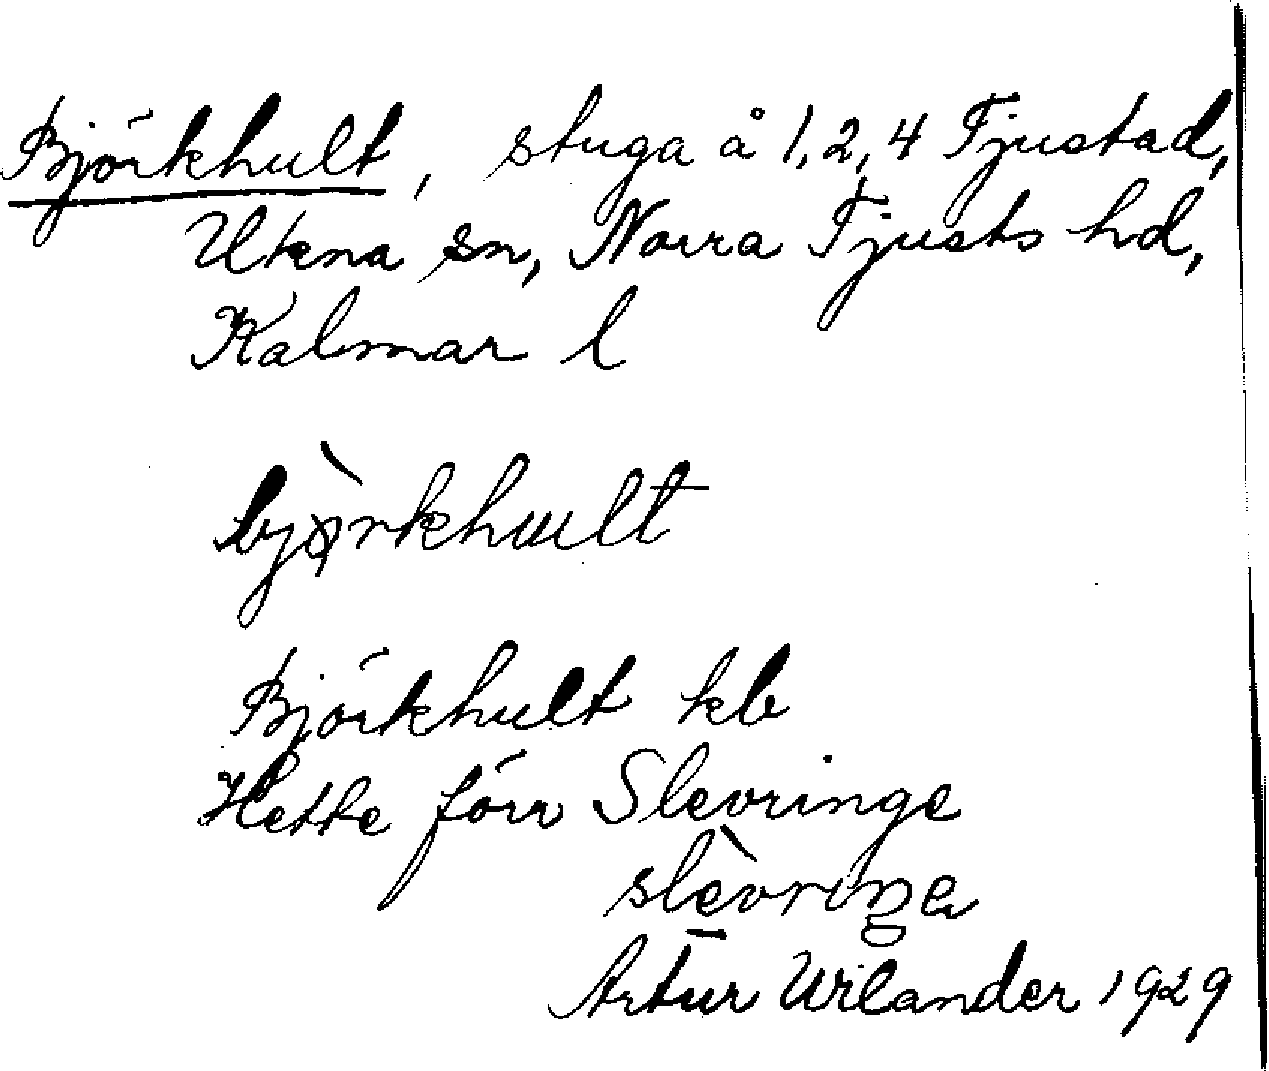 Björkhult, stuga å 1, 2, 4 Tjustad,
Ukna sn, Norra Tjusts hd,
Kalmar l
Björkhult kb
Hette förr Slevringe
Artur Wilander 1929